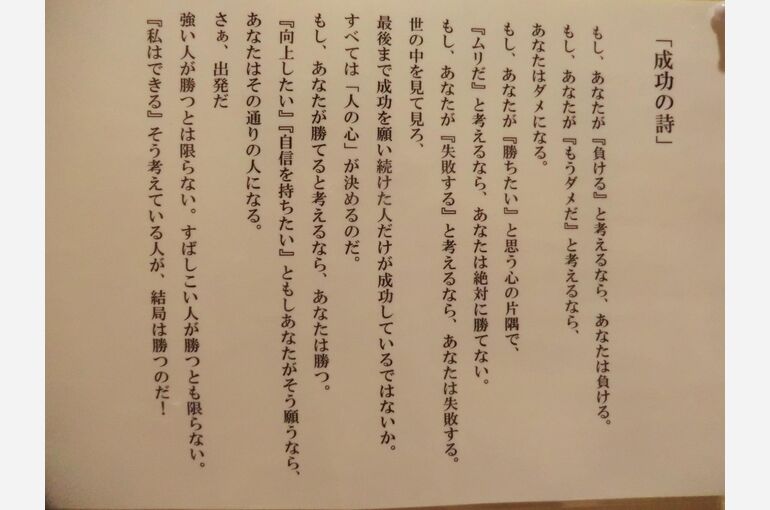 「成功の詩」
もし、あなたが『負ける』と考えるなら、あなたは負ける。
もし、あなたが『もうダメだ』と考えるなら、
あなたはダメになる。
もし、あなたが『勝ちたい』と思う心の片隅で、
『ムリだ』と考えるなら、あなたは絶対に勝てない。
もし、あなたが『失敗する』と考えるなら、あなたは失敗する。
世の中を見て見ろ、
最後まで成功を願い続けた人だけが成功しているではないか。
すべては「人の心」が決めるのだ。
もし、あなたが勝てると考えるなら、あなたは勝つ。
『向上したい』『自信を持ちたい』ともしあなたがそう願うなら、
あなたはその通りの人になる。
さぁ、出発だ
強い人が勝つとは限らない。すばしこい人が勝つとも限らない。
『私はできる』そう考えている人が、結局は勝つのだ！